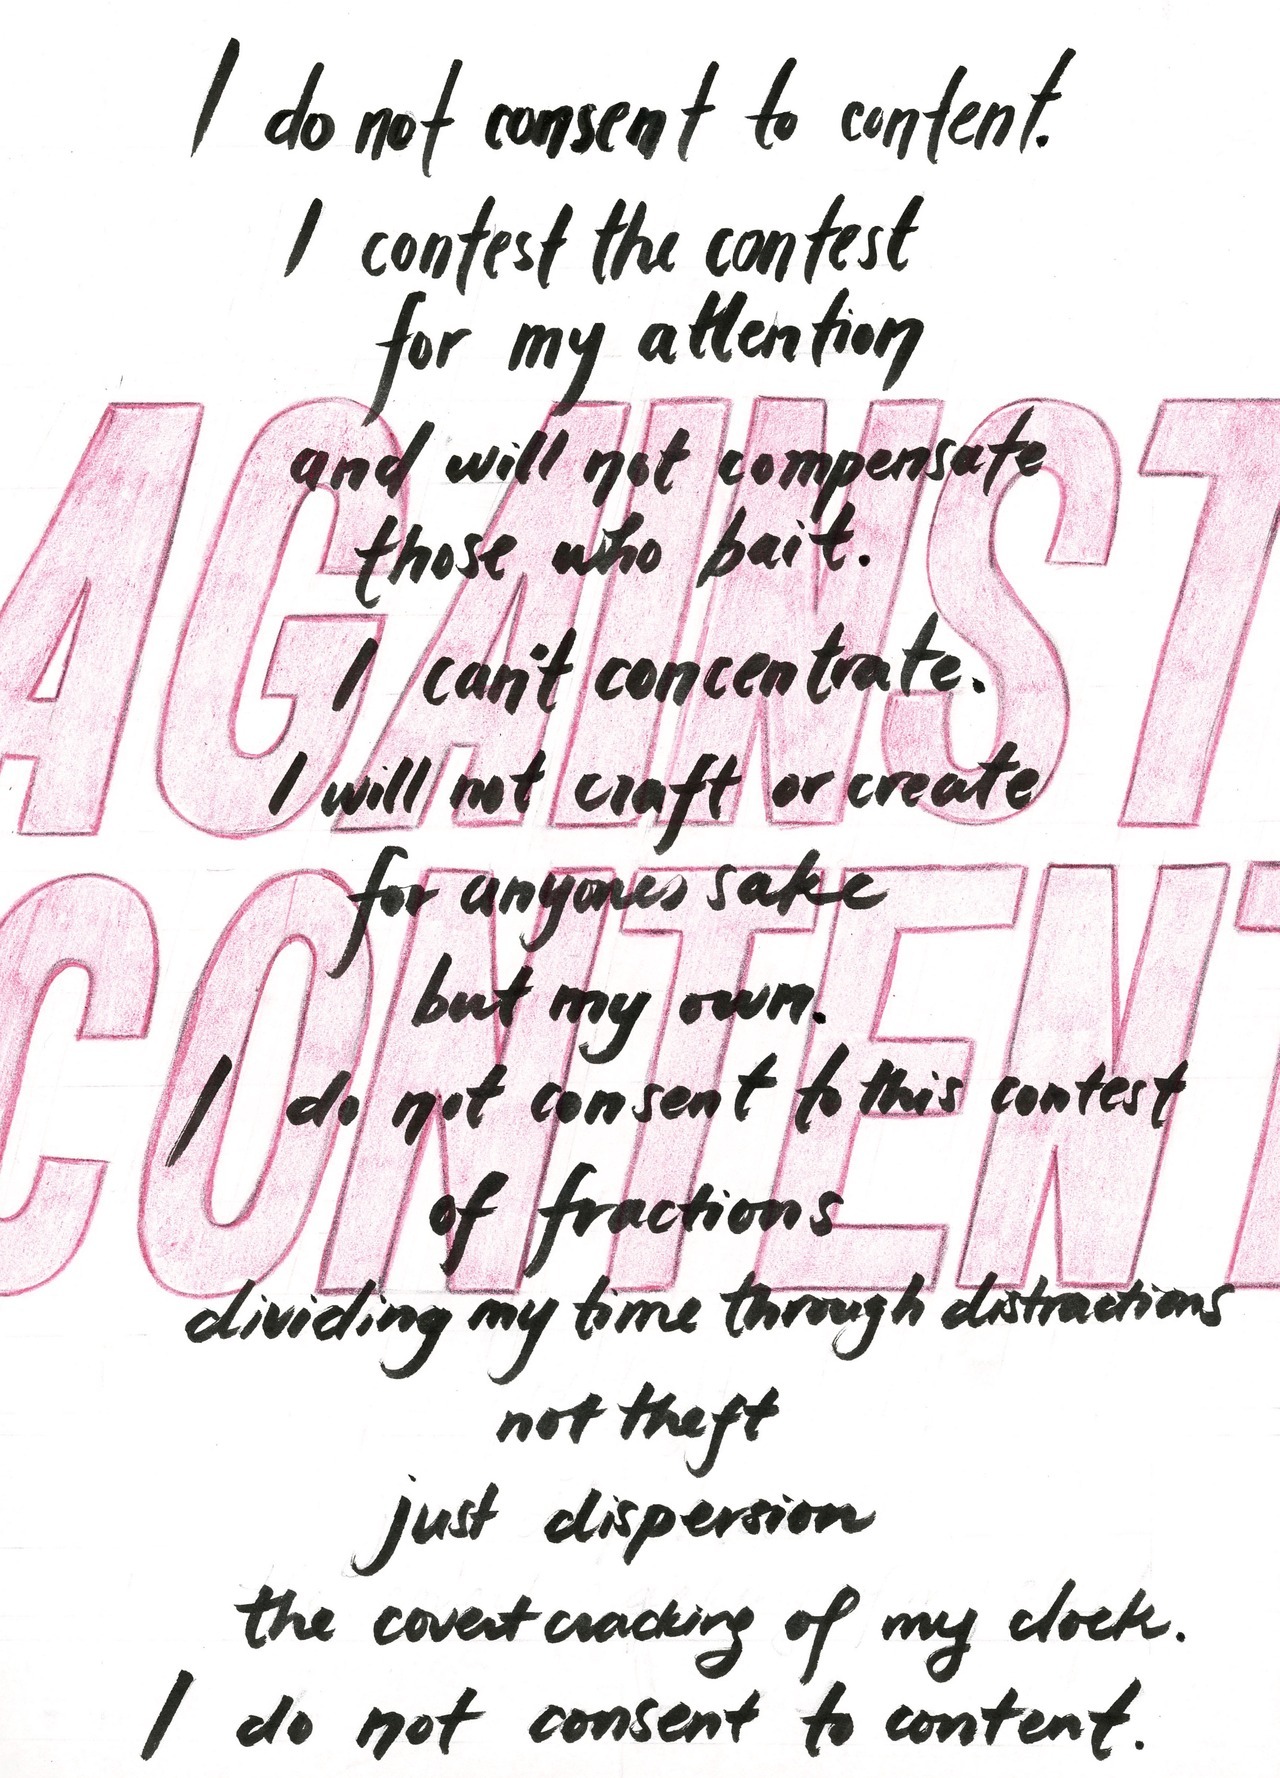 I do not consent to content.
I contest the contest
for my attention
and will not compensate
those who bait.
I can't concentrate.
I will not craft or create
for anyones sake
but my own.
I do not consent to this contest
of fractions
dividing my time through distractions
not theft
just dispersion
the covert cracking of my clock.
I do not consent to content.
AGAINST
CONTENT